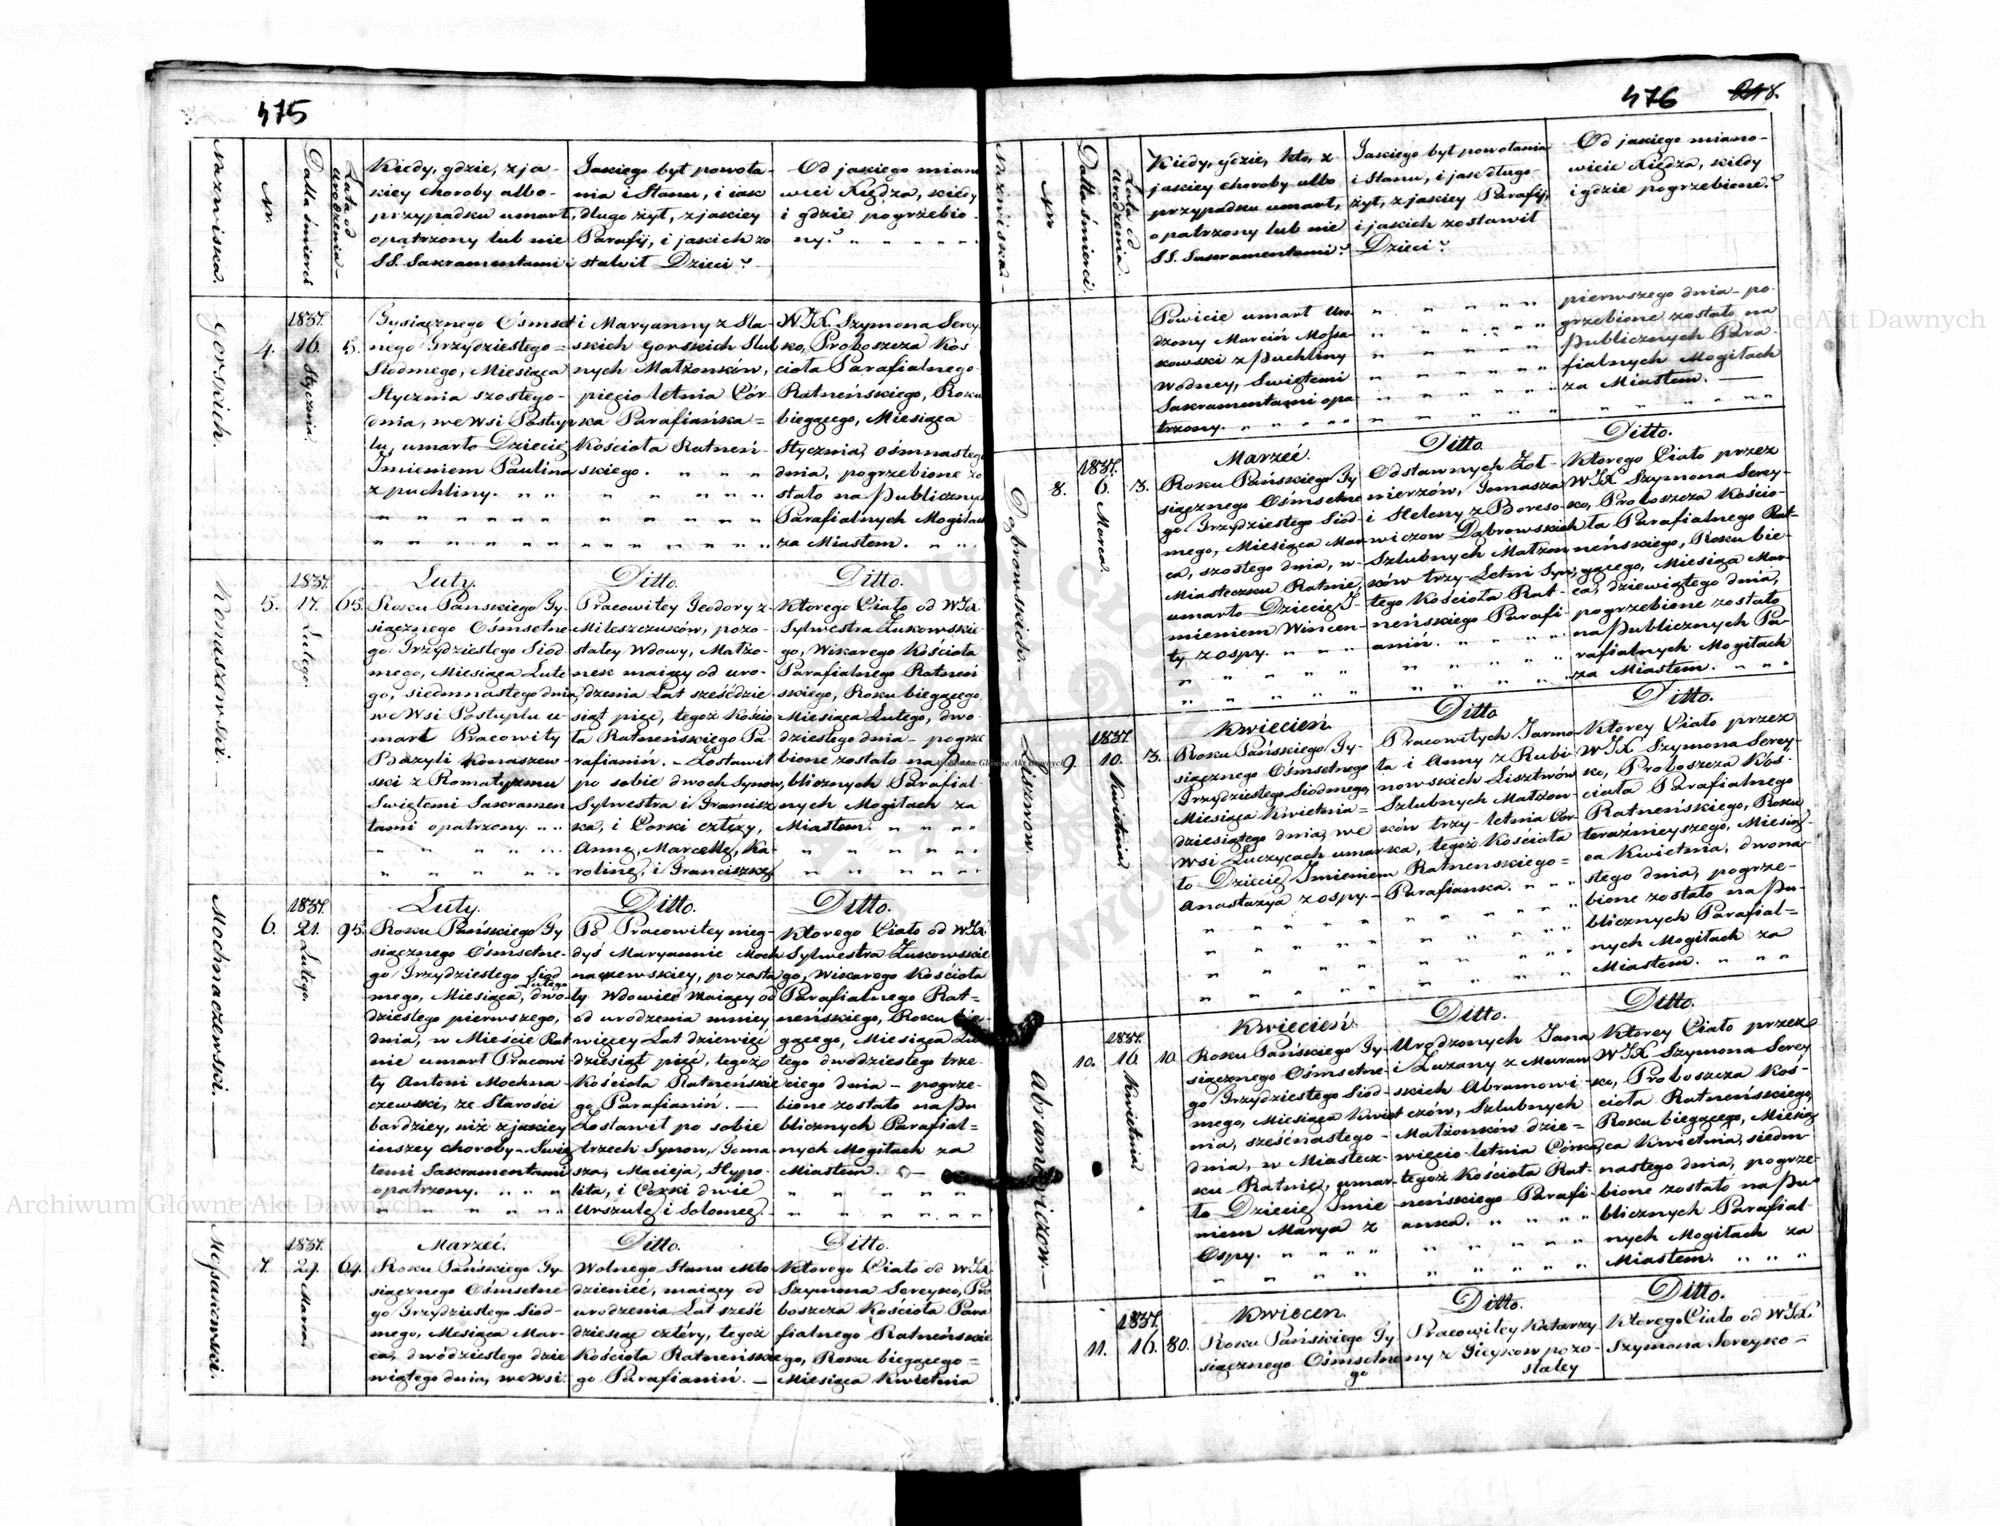 475
Nazwiska.
Nr.
Datta śmierci
Lata od urodzenia
Kiedy, gdzie, z ja-
kiey choroby albo-
przypadku umarł,
opatrzony lub nie
SS. Sakramentami
Jakiego był powoła-
nia i Stanu, i jak
długo żył, z jakiey
Parafij, i jakich zo
stawił Dzieci?
Od jakiego miano
wici Xiędza, kiedy
i gdzie pogrzebio-
ny?
Gorskich.
4.
1837.
16. Stycznia.
5.
Tysiącznego Ośmset
nego Trzydziestego =
Siódmego, Miesiąca
Stycznia szostego-
dnia, we Wsi Postup
lu, umarło Dziecię
Imieniem Paulina
z puchliny.
i Maryanny z Sla-
skich Gorskich Slub
nych Małżonków,
pięcio letnia Cór-
ka Parafianka =
Kościoła Ratneń-
skiego.
WJX. Szymona Serey
ko, Proboszcza Koś
cioła Parafialnego
Ratneńskiego, Roku
biegącego, Miesiąca
Stycznia, ośmnastego
dnia, pogrzebione zo
stało na Publicznych
Parafialnych Mogiłach
za Miastem.
Konaszewski.
5.
1837.
17. Lutego.
65.
Luty.
Roku Pańskiego Ty-
siącznego Ośmsetne
go Trzydziestego Siód
mego, Miesiąca Lute
go, siedmnastego dnia,
we Wsi Postuplu u-
marł Pracowity
Bazyli Konaszew-
ski z Romatyzmu
Swiętemi Sakramen
tami opatrzony.
Ditto.
Pracowitey Teodory z
Mileszczuków, pozo-
staley Wdowy, Małżo-
nek maiący od uro-
dzenia Lat sześćdzie
siąt pięć, tegoż Kościo
ła Ratneńskiego Pa-
rafianin. - Zostawił
po sobie dwoch Synow,
Sylwestra i Francisz
ka, i Corki cztery,
Annę, Marcellę, Ka-
rolinę, i Franciszkę
Ditto.
Ktorego Ciało od WJX
Sylwestra Zukowskie
go, Wikarego Kościoła
Parafialnego Ratneń
skiego, Roku biegącego,
Miesiąca Lutego, dwo-
dziestego dnia - pogrze
bione zostało na Pu
blicznych Parafial-
nych Mogiłach za
Miastem.
Mochnaczewski.
6.
1837.
21. Lutego.
95.
Luty.
Roku Pańskiego Ty
siącznego Ośmsetne-
go Trzydziestego Siód
Lutego
mego, Miesiąca, dwo-
dziestego pierwszego,
dnia, w Mieście Rat
nie umarł Pracowi
ty Antoni Mochna
czewski, ze Starości
bardziey, niż z jakiey
inszey choroby - Swię
temi Sakramentami
opatrzony.
Ditto.
Po Pracowitey nieg-
dyś Maryannie Moch
naczewskiey, pozosta
ły Wdowiec maiący od
od urodzenia mniey
więcey Lat dziewięć
dziesiąt pięć, tegoż
Kościoła Ratneńskie
go Parafianin. -
Zostawił po sobie
trzech Synow, Toma
sza, Macieja, Hypo-
lita, i Corki dwie
Urszulę i Solomeę.
Ditto.
Ktorego Ciało od WJX
Sylwestra Zukowskie
go, Wikarego Kościoła
Parafialnego Rat=
neńskiego, Roku bie
gącego, Miesiąca Lu
tego dwodziestego trze-
ciego dnia - pogrze-
bione zostało na Pu
blicznych Parafial-
nych Mogiłach za
Miastem.
Mossakowski.
7.
1837.
29. Marca
64.
Marzec.
Roku Pańskiego Ty-
siącznego Ośmsetne
go Trzydziestego Siod-
mego, Mesiąca Mar-
ca, dwódziestego dzie
wiątego dnia, we Wsi
Ditto.
Wolnego Stanu Mło
dzieniec, maiący od
urodzenia Lat sześć
dziesiąt cztéry, tegoż
Kościoła Ratneńskie
go Parafianin. -
Ditto.
Ktorego Ciało od WJX
Szymona Sereyko, Pro
boszcza Kościoła Para
fialnego Ratneńskie
go, Roku biegącego =
Miesiąca Kwietnia
476
8.
Nazwiska -
Nr
Datta śmierci.
Lata od Urodzenia.
Kiedy, gdzie, kto, z
jakiey choroby albo
przypadku umarł,
opatrzony lub nie
SS. Sakramentami?
Jakiego był powołania
i Stanu, i jak długo-
żył, z jakiey Parafij,
i jakich zostawił
Dzieci?
Od jakiego miano-
wicie Xiędza, kiedy
i gdzie pogrzebione?
Powicie umarł Uro-
dzony Marcin Mossa-
kowski z Puchliny
Wodney, Swiętemi
Sakramentami opa-
trzony.
pierwszego dnia - po-
grzebione zostało na
Publicznych Para-
fialnych Mogiłach
za Miastem. -
Dąbrowskich. -
8.
1837.
6. Marca.
3.
Marzec.
Roku Pańskiego Ty
siącznego Ośmsetne
go Trzydziestego Siód-
mego, Miesiąca Mar
ca, szostego dnia, w-
Miasteczku Ratnie,
umarło Dziecię I-
mieniem Wincen-
ty z ospy.
Ditto
Odstawnych Żoł-
nierzów, Tomasza
i Heleny z Boreso-
wiczow Dąbrowskich
Szlubnych Małżon
ków trzy-Letni Syn,
tego Kościoła Rat-
neńskiego Parafi-
anin.
Ditto.
Ktorego Ciało przez
WJX Szymona Serey-
ko, Proboszcza Kościo-
ła Parafialnego Rat-
neńskiego, Roku bie-
gącego, Miesiąca Mar-
ca, dziewiątego dnia,
pogrzebione zostało
na Publicznych Pa-
rafialnych Mogiłach
za Miastem.
Lisztwow.
9.
1837
10. Kwietnia
3.
Kwiecień.
Roku Pańskiego Ty-
siącznego Ośmsetnego
Trzydziestego Siodmego,
Miesiąca Kwietnia =
dziesiątego dnia, we
Wsi Luczycach umar
ło Dziecię Imieniem
Anastazya z ospy. -
Ditto
Pracowitych Jarmo-
ła i Anny z Rubi-
nowskich Lisztwów
Szlubnych Małżon-
ków trzy-letnia Cór-
ka, tegoż Kościoła
Ratnenskiego =
Parafianka.
Ditto.
Ktorey Ciało przez
WJX Szymona Serey-
ko, Proboszcza Koś-
cioła Parafialnego
Ratneńskiego, Roku
teraźnieyszego, Miesią-
ca Kwietnia, dwona-
stego dnia, pogrze-
bione zostało na Pu-
blicznych Parafial=
nych Mogiłach za
Miastem.
Abramowiczow. -
10.
1837.
16 Kwietnia
10.
Kwiecień
Roku Pańskiego Ty-
siącznego Ośmsetne
go Trzydziestego Siód-
mego, Miesiąca Kwiet
nia, sześćnastego -
dnia, w Miastecz-
ku - Ratnie, umar-
ło Dziecię Imie
niem Marya z
Ospy.
Ditto.
Urodzonych Jana
i Zuzany z Muraw
skich Abramowi-
czów, Szlubnych
Małżonków dzie =
więcio-letnia Córka,
tegoż Kościoła Rat-
neńskiego Parafi-
anka.
Ditto.
Ktorey Ciało przez
WJX Szymona Serey
ko, Proboszcza Koś-
cioła Ratneńskiego,
Roku biegącego, Miesią
ca Kwietnia, siedm-
nastego dnia, pogrze-
bione zostało na Pu
blicznych Parafial-
nych Mogiłach za
Miastem.
11.
1837.
16.
80.
Kwiecen.
Roku Pańskiego Ty
siącznego Ośmsetne
go
Ditto.
Pracowitey Katarzy
ny z Gieykow pozo-
staley
Ditto.
Ktorego Ciało od WJX.
Szymona Sereyko -
Archiwum Główne Akt Dawnych
Archiwum Główne Akt Dawnych
Archiwum Główne Akt Dawnych